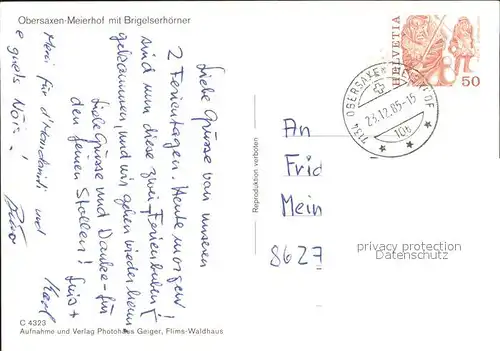 Obersaxen-Meierhof mit Brigelserhörner
Liebe Grüsse von unseren
2 Ferientagen. Heute morgen!
sind nun diese zwei Ferienbuben!
gekommen, und wir gehen wieder heim.
Liebe Grüsse und Danke für
den feinen Stollen!
Merci für d'Mandarindli und
e guets Nöis!
HELVETIA
50
7134 OBERSAXEN MEIERHOF
23.12.85-15
10b
An
Frid
Mein
8627
privacy protection
Datenschutz
Reproduktion verboten
C 4323
Aufnahme und Verlag Photohaus Geiger, Flims-Waldhaus